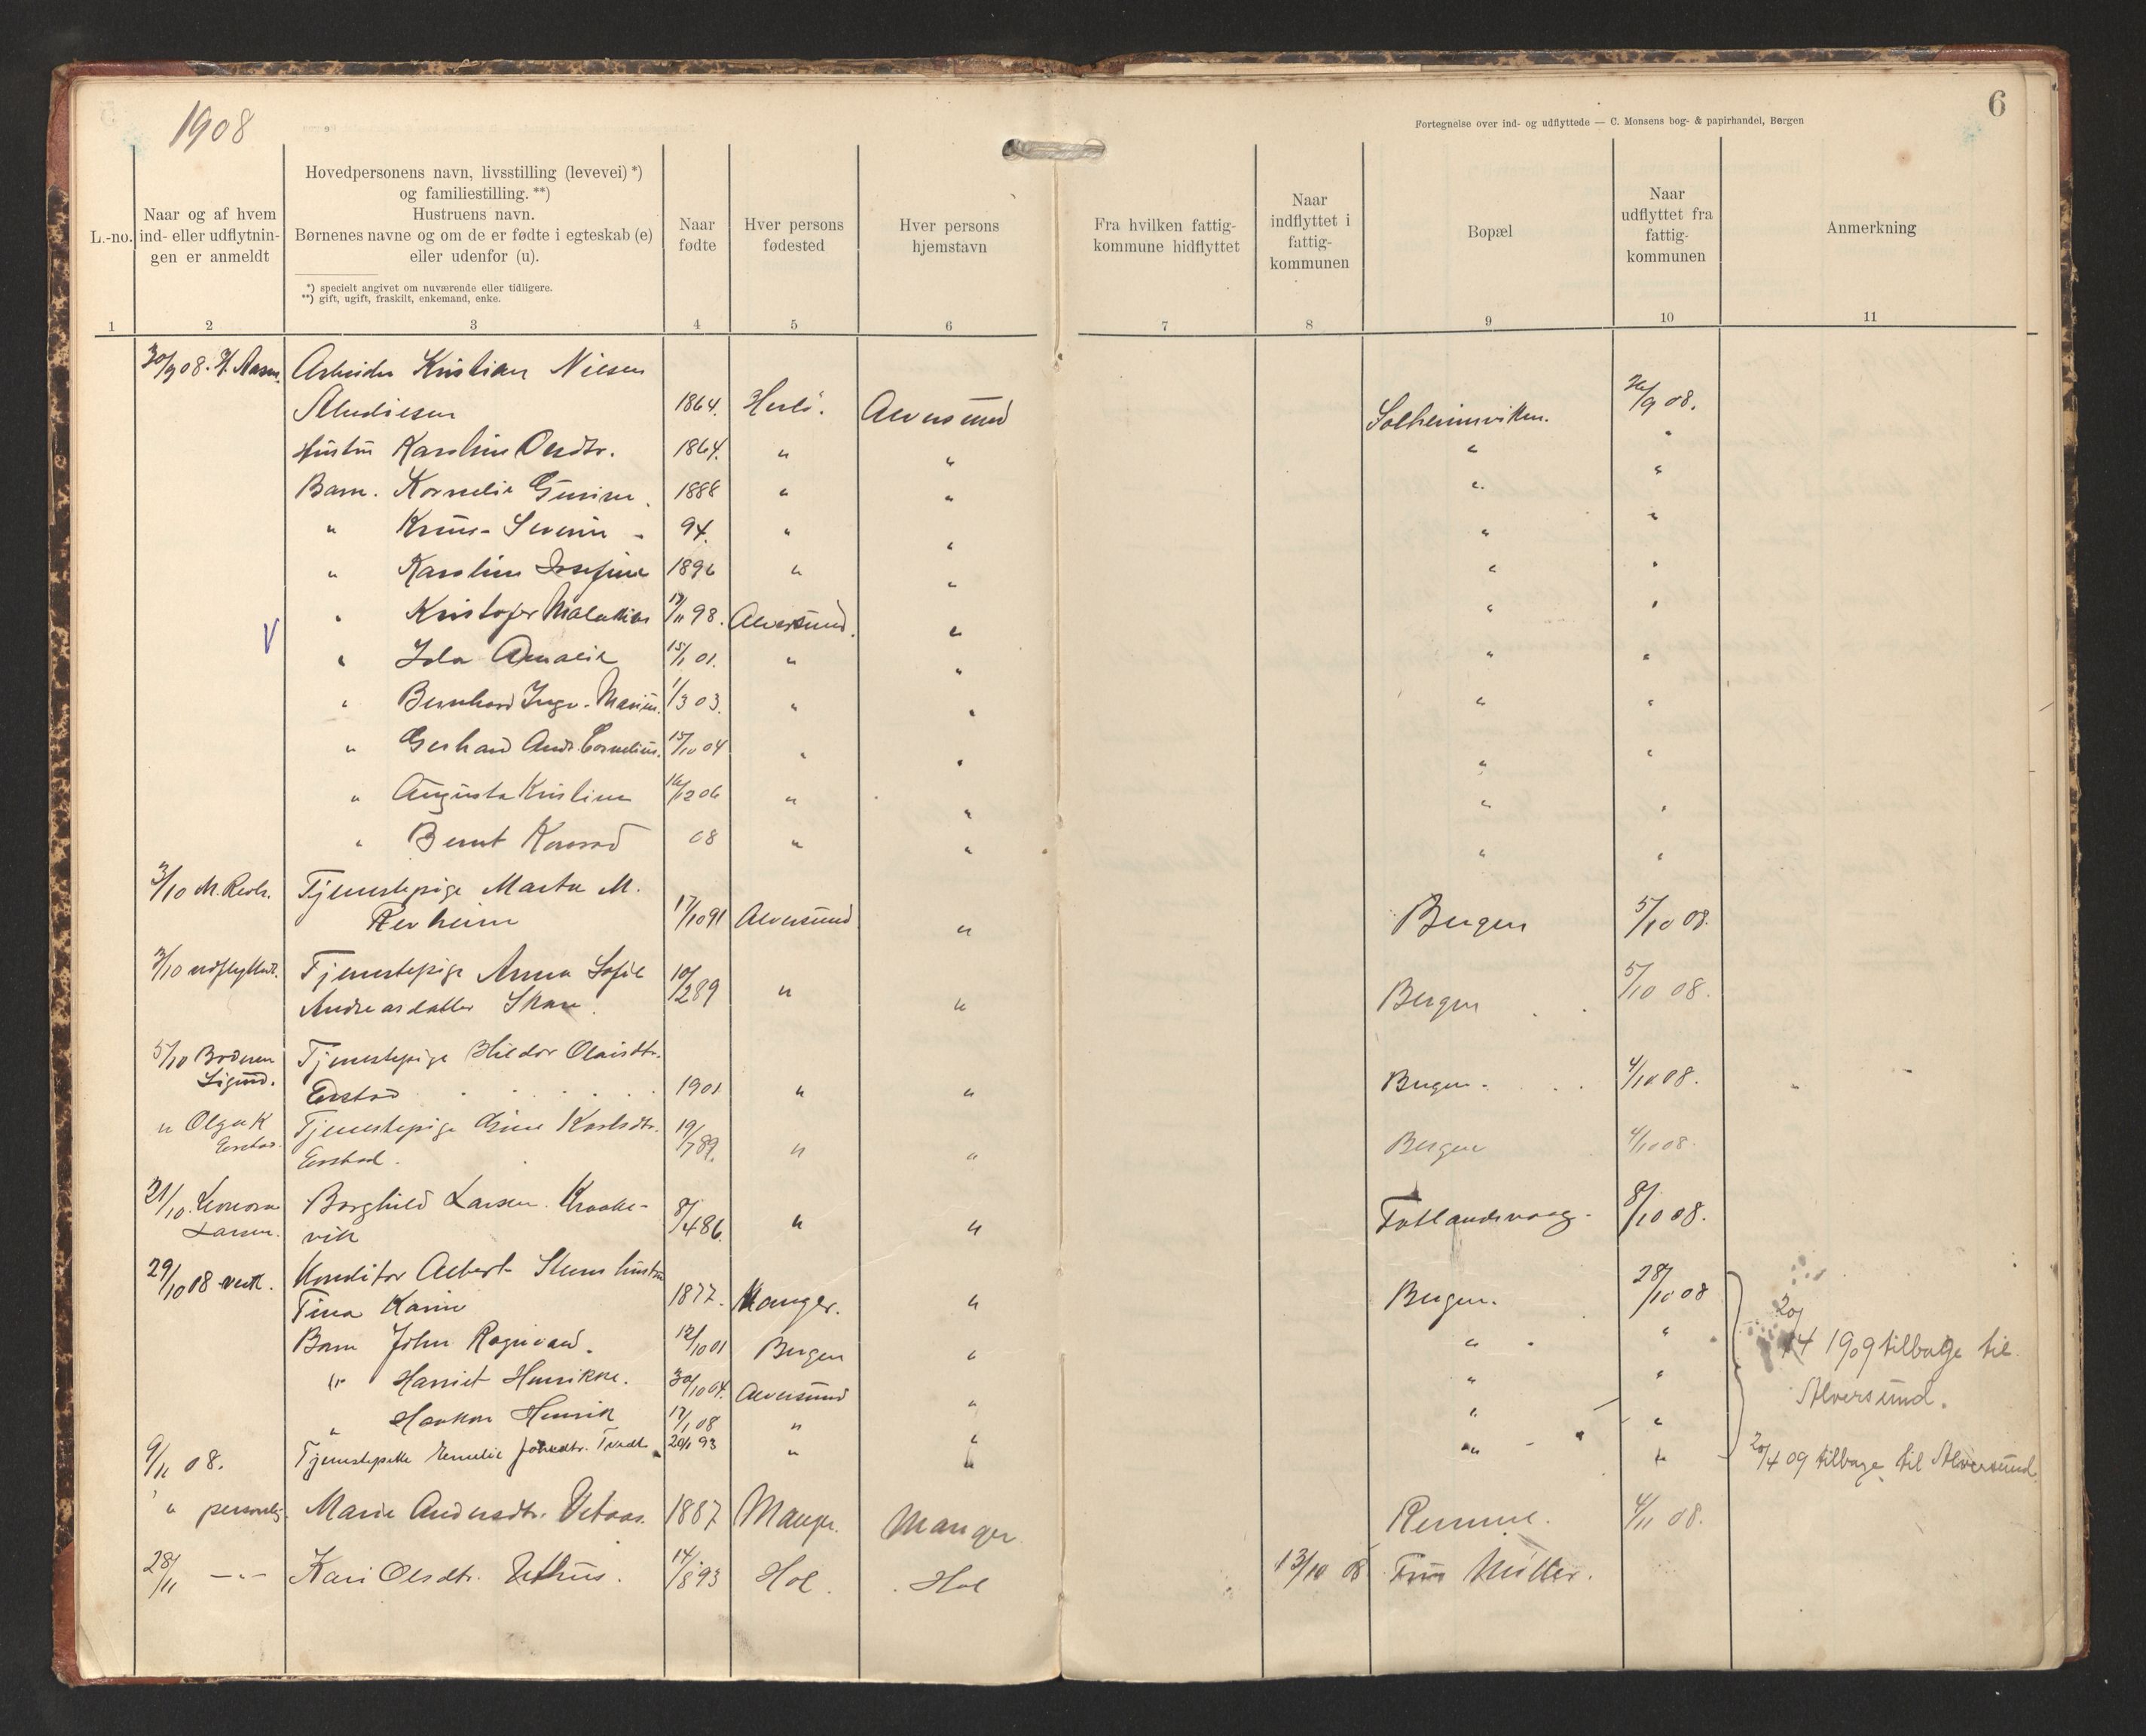 1908
6
Fortegnelse over ind- og udflyttede — C. Monsens bog- & papirhandel, Bergen
L.-no.
Naar og af hvem
ind- eller udflytnin-
gen er anmeldt
Hovedpersonens navn, livsstilling (levevei) *)
og familiestilling. **)
Hustruens navn.
Børnenes navne og om de er fødte i egteskab (e)
eller udenfor (u).
*) specielt angivet om nuværende eller tidligere.
**) gift, ugift, fraskilt, enkemand, enke.
Naar
fødte
Hver persons
fødested
Hver persons
hjemstavn
Fra hvilken fattig-
kommune hidflyttet
Naar
indflyttet i
fattig-
kommunen
Bopæl
Naar
udflyttet fra
fattig-
kommunen
Anmerkning
1 2 3 4 5 6 7 8 9 10 11
30/9 08. Arbeider Kristian Nilsen
1864. Herlö. Alversund Solheimsviken. 26/9 08.
Hustru Karoline Olsdtr. 1864. " " " "
Barn. Kornelia 1888 " " " "
" Severin 94. " " " "
" Karoline Josefine 1896 " " " "
" Kristofer Malakias 17/11 98. Alversund. " " "
" Ida Amalie 15/1 01. " " " "
" Bernhard Ingv. Marius. 1/3 03. " " " "
" Gerhard Andr. Cornelius. 15/10 04 " " " "
" Augusta Kristine 16/12 06 " " " "
" Bernt Konrad 08 " " " "
3/10 M. Tjenestepige Marta M.
Revheim 17/10 91 Alversund " Bergen 5/10 08.
3/10 udflyttet. Tjenestepige Anna Sofie
Andreasdatter Skare. 10/2 89 " " Bergen 5/10 08.
5/10 Broderen Tjenestepige Olaisdtr.
Sigurd. 1901 " " Bergen. 4/10 08.
" Olga K Tjenestepige Karlsdtr.
19/7 89. " " Bergen 4/10 08.
21/10. Borghild Larsen. Kraake-
Larsen. vik 8/4 86. " " Fotlandsvaag. 8/10 08.
29/10 08 Konditor Albert hustru
Tina Karin 1877. Manger. " Bergen. 28/10 08
Barn John Ragnvald. 12/10 01 Bergen " " "
20/4 1909 tilbage til
" Harriet Henrikke. 30/10 04. Alversund " " "
Alversund.
" Haakon Henrik 17/1 08 " " " "
9/11 08. Emelie Tvedt 20/1 93 " " " " 20/4 09 tilbage til Alversund.
" personlig. Marie Andersdtr. Vetaas. 1887 Manger. Manger 4/11 08.
28/11 —"— Kari Olsdtr. 14/8 93 Hol. Hol 13/10 08 Müller.